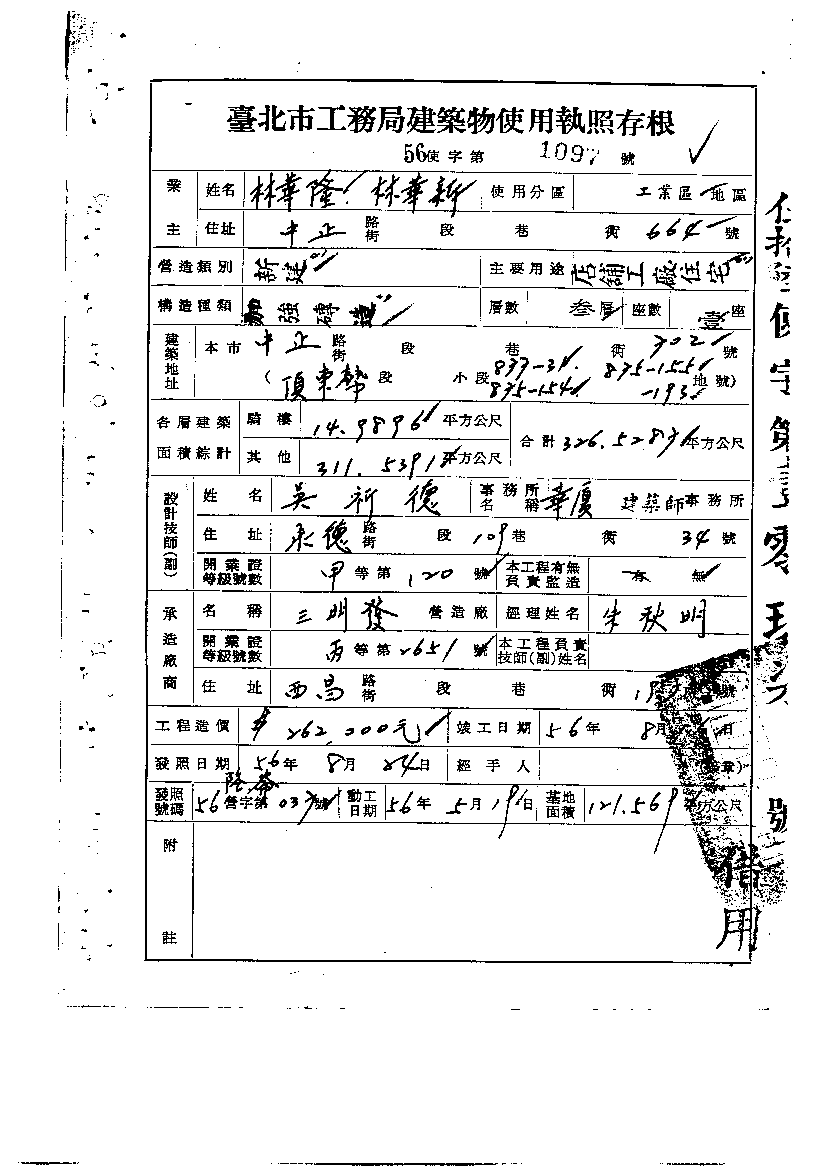 臺北市工務局建築物使用執照存根
56使字第 1097 號
業主 姓名 林華隆 林華新 使用分區 工業區 地區
住址 中正 路街 段 巷 衖 664 號
營造類別 新建 主要用途 店舖工廠住宅
構造種類 加強磚造 層數 叁層 座數 壹座
建築地址 本市 中正 路街 段 巷 衖 302 號
(頂東勢 段 小段 837-31 835-154 835-155 -193 地號)
各層建築面積綜計 騎樓 14.9896 平方公尺 合計 326.5287 平方公尺
其他 311.5391 平方公尺
設計技師(副) 姓名 吳祈德 事務所名稱 華廈 建築師事務所
住址 承德 路街 段 109 巷 衖 34 號
開業證等級號數 甲 等第 120 號 本工程有無負責監造 有 無
承造廠商 名稱 三明發 營造廠 經理姓名 朱秋明
開業證等級號數 丙 等第 2651 號 本工程負責技師(副)姓名
住址 西昌 路街 段 巷 衖 號
工程造價 262,000元 竣工日期 56年 8月 日
發照日期 56年 8月 24日 經手人 (簽章)
發照號碼 56 營字第 號 動工日期 56年 5月 19日 基地面積 121.569 平方公尺
附註
伍拾陸使字第壹零玖 號
借用